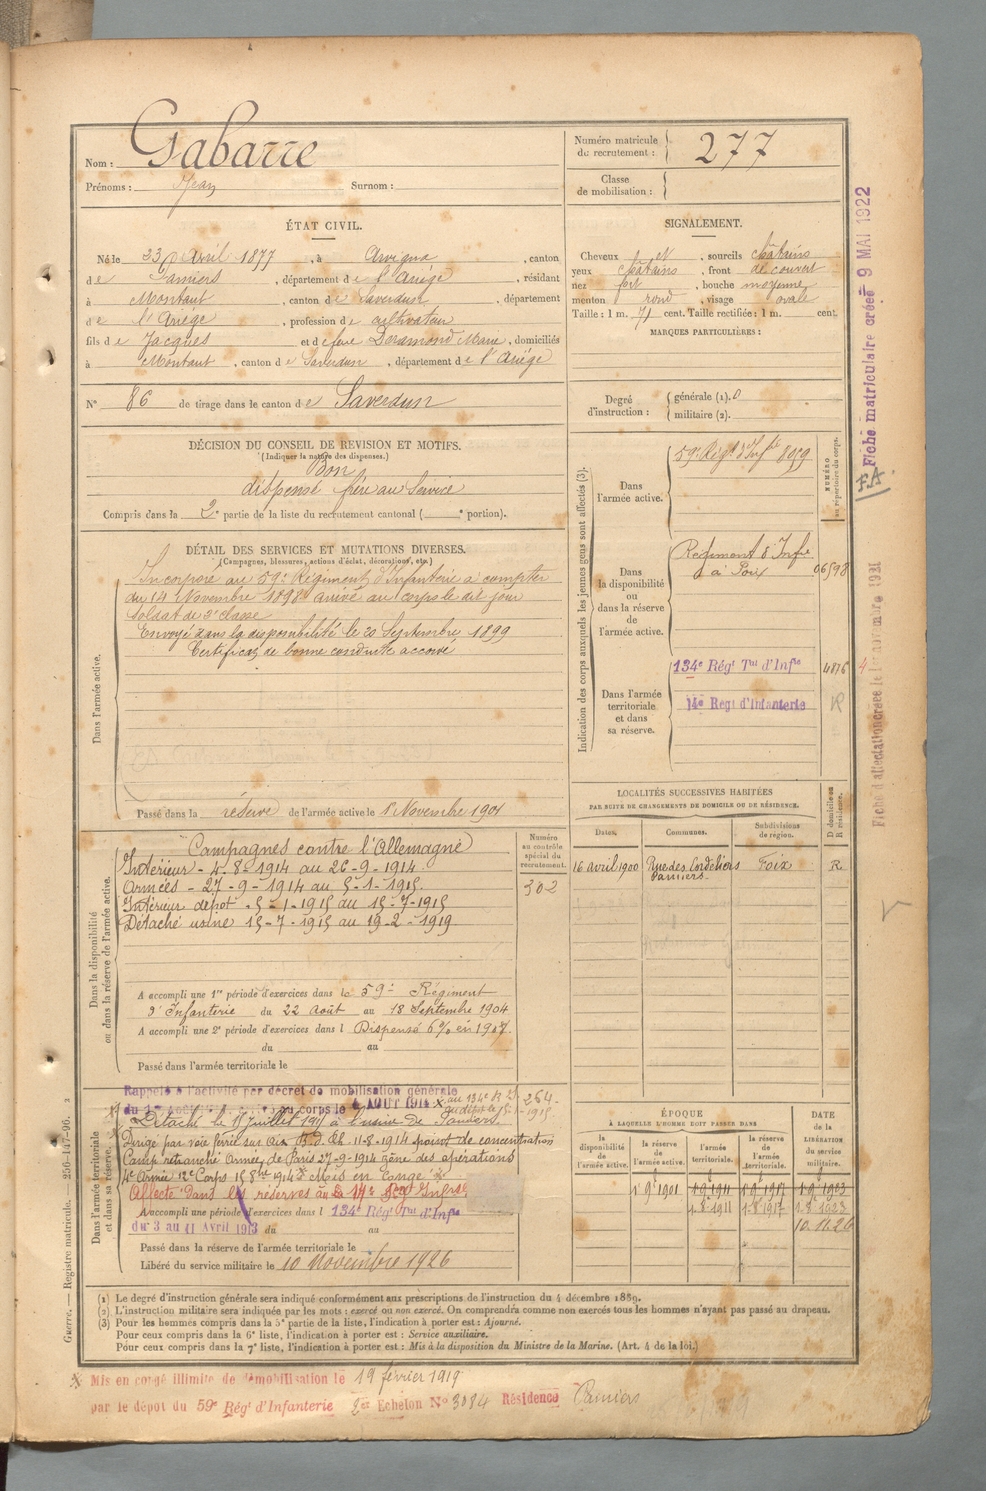 Nom : Gabarre
Prénoms : Jean Surnom :
Numéro matricule du recrutement : 277
Classe de mobilisation :
ÉTAT CIVIL.
Né le 23 Avril 1877, à Arvigna, canton
de Pamiers, département de l'Ariège, résidant
à Montaut, canton de Saverdun, département
de l'Ariège, profession de cultivateur
fils de Jacques et de feue Deramond Marie, domiciliés
à Montaut, canton de Saverdun, département de l'Ariège
N° 86 de tirage dans le canton de Saverdun
SIGNALEMENT.
Cheveux et, sourcils châtains
yeux châtains, front découvert
nez fort, bouche moyenne
menton rond, visage ovale
Taille : 1 m. 71 cent. Taille rectifiée : 1 m. cent.
MARQUES PARTICULIÈRES :
Degré d'instruction : générale (1).
militaire (2).
DÉCISION DU CONSEIL DE REVISION ET MOTIFS.
(Indiquer la nature des dispenses.)
Bon
dispensé frère au Service
Compris dans la 2e partie de la liste du recrutement cantonal ( e portion).
DÉTAIL DES SERVICES ET MUTATIONS DIVERSES.
(Campagnes, blessures, actions d'éclat, décorations, etc.)
Dans l'armée active.
Incorporé au 59e Régiment d'Infanterie à compter
du 14 Novembre 1898 arrivé au corps le dit jour
soldat de 2e classe
Envoyé dans la disponibilité le 20 Septembre 1899
Certificat de bonne conduite accordé
Passé dans la réserve de l'armée active le 1er Novembre 1901
Indication des corps auxquels les jeunes gens sont affectés (3).
NUMÉRO au répertoire du corps.
Dans l'armée active.
59e Régt d'Infie 8959
Dans la disponibilité ou dans la réserve de l'armée active.
Régiment d'Infie
à Foix 06598
Dans l'armée territoriale et dans sa réserve.
134e Régt Tal d'Infie 4876
14e Régt d'Infanterie
LOCALITÉS SUCCESSIVES HABITÉES
PAR SUITE DE CHANGEMENTS DE DOMICILE OU DE RÉSIDENCE.
Dates. Communes. Subdivisions de région. D domicile ou R résidence.
16 avril 1900 Rue des Cordeliers Pamiers. Foix R.
Dans la disponibilité ou dans la réserve de l'armée active.
Numéro au contrôle spécial du recrutement.
302
Campagnes contre l'Allemagne
Intérieur - 4-8-1914 au 26-9-1914.
Armées - 27-9-1914 au 5-1-1915.
Intérieur dépôt - 5-1-1915 au 15-7-1915
Détaché usine 15-7-1915 au 19-2-1919
A accompli une 1re période d'exercices dans le 59e Régiment
d'Infanterie du 22 août au 18 Septembre 1904
A accompli une 2e période d'exercices dans l Dispensé 6% en 1907.
du au
Passé dans l'armée territoriale le
Dans l'armée territoriale et dans sa réserve.
Rappelé à l'activité par décret de mobilisation générale
au corps le 4 AOUT 1914
264.
Détaché le 15 Juillet 1915 à l'usine de Pamiers.
Dirigé par voie ferrée sur 11-8-1914 point de concentration
Camp retranché Armée de Paris 27-9-1914 zone des opérations
4e Armée 12e Corps
Affecté dans les réserves au 14e Régt Infie
A accompli une période d'exercices dans l 134e Régt Tal d'Infie
du 3 au 11 Avril 1913 du au
Passé dans la réserve de l'armée territoriale le
Libéré du service militaire le 10 Novembre 1926
ÉPOQUE
À LAQUELLE L'HOMME DOIT PASSER DANS
la disponibilité de l'armée active. la réserve de l'armée active. l'armée territoriale. la réserve de l'armée territoriale.
DATE de la LIBÉRATION du service militaire.
1.9.1901 1.9.1911 1.9.1917 1.9.1923
1.8.1911 1.8.1917 1.8.1923
10.11.26
(1) Le degré d'instruction générale sera indiqué conformément aux prescriptions de l'instruction du 4 décembre 1889.
(2) L'instruction militaire sera indiquée par les mots : exercé ou non exercé. On comprendra comme non exercés tous les hommes n'ayant pas passé au drapeau.
(3) Pour les hommes compris dans la 5e partie de la liste, l'indication à porter est : Ajourné.
Pour ceux compris dans la 6e liste, l'indication à porter est : Service auxiliaire.
Pour ceux compris dans la 7e liste, l'indication à porter est : Mis à la disposition du Ministre de la Marine. (Art. 4 de la loi.)
Mis en congé illimité de démobilisation le 19 février 1919
par le dépôt du 59e Régt d'Infanterie 2e Echelon N° 3084 Résidence Pamiers
Guerre. — Registre matricule. — 256-147-96.
Fiche matriculaire créée 9 MAI 1922
F.A.
Fiche d'affectation créée le 1er novembre 1931